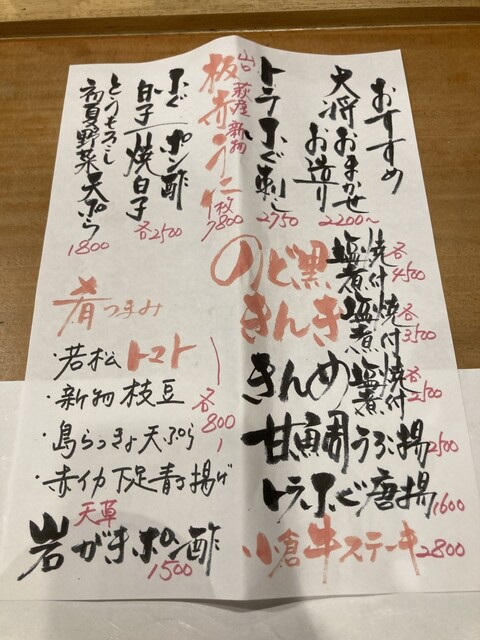 おすすめ
大将おまかせ
お造り
2200〜
トラふぐ刺し
2750
山口 萩産 新物
板赤うに
1枚
7800
ふぐ ポン酢
白子/焼白子
各2500
とうもろこし
初夏野菜天ぷら
1800
のど黒
塩焼
煮付
各4500
きんき
塩焼
煮付
各3500
きんめ
塩焼
煮付
各2500
甘鯛うろこ揚
2500
トラふぐ唐揚
1600
小倉牛ステーキ
2800
肴つまみ
・若松トマト
・新物枝豆
・島らっきょ天ぷら
・赤イカ下足青さ揚げ
各800
天草
岩がきポン酢
1500